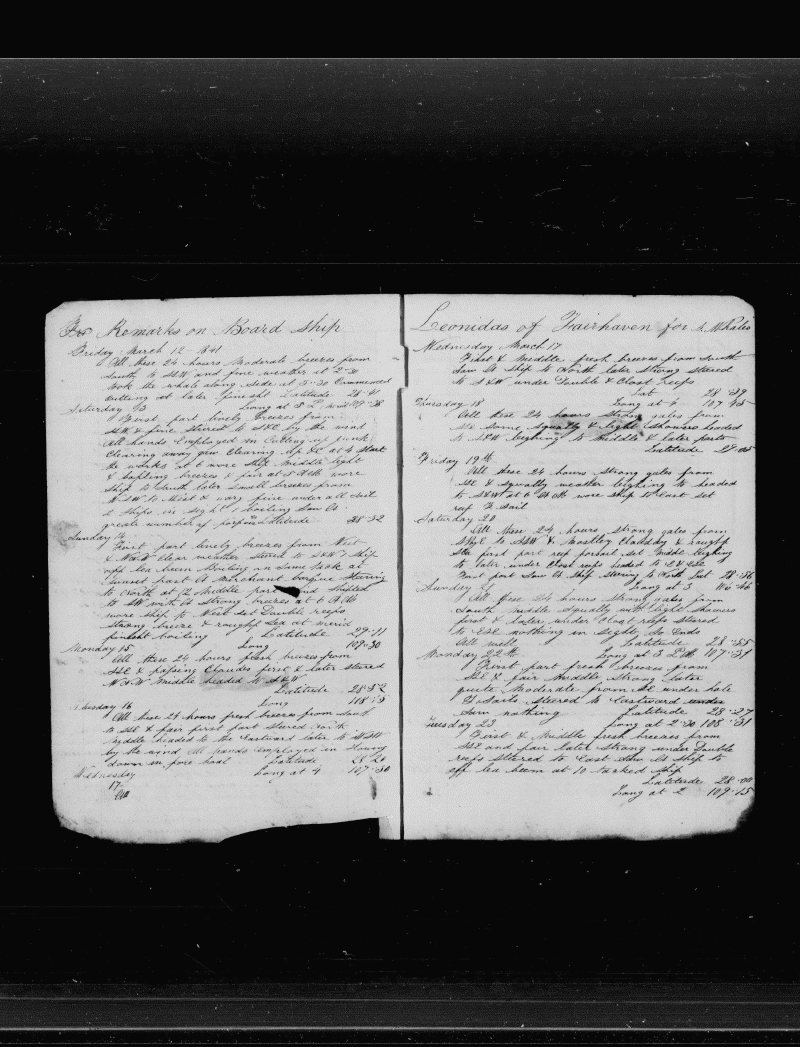 Remarks on Board Ship
Friday March 12 1841
All these 24 hours Moderate breezes from
South to SSW and fine weather at 2-30
took the whale along side at 5-30 Commenced
Cutting at later finisht Latitude 28-41
Saturday 13 Long at 5 P.M.
First part lively breezes from
& fine steered to SSE by the wind
All hands Employed in Cutting up junk
Clearing away gear Clearing up &c at 4 Start
the works at 6 wore Ship Middle light
& baffling breezes & fair at 5 AM wore
Ship to South later Small breezes from
to West & very fine under all Sail
2 Ships in Sight boiling Saw Os
greate number of Latitude 28-32
Sunday 14
First part lively breezes from West
& NW Clear weather Steered to SSW 1 Ship
off lea beem boiling on Same tack at
Sunset past a Merchant barque Steering
to North at 12 Middle part and Shifted
to SW with a Strong breezes at 6 AM
wore Ship to West Set Double reefs
Strong breeze & rough Sea at merid
finisht boiling Latitude 29-11
Monday 15 Long 109-30
All these 24 hours fresh breezes from
SSE & passing Clouds first & later steered
Middle headed to SSW
Latitude 28-52
Long
Tuesday 16
All these 24 hours fresh breezes from South
to SSE & fair first part Steered North
Middle headed to the Eastward later to
by the wind All hands employed in Stowing
down in fore hold Latitude 28-20
Wednesday Long at 4 107-30
17
Leonidas of Fairhaven for S. Whales
Wednesday March 17
First & Middle fresh breezes from South
Saw a Ship to North later Strong Steered
to SSW under Double & Clost reefs
Lat 28-39
Thursday 18 Long at 4 107-45
All these 24 hours Strong gales from
Some Squally & light Showers headed
to SSW laying to middle & later parts
Latitude
Friday 19th
All these 24 hours Strong gales from
SSE & Squally weather laying to headed
to SSW at 6 AM wore Ship to East Set
reef Sail
Saturday 20
All these 24 hours Strong gales from
to SSW & Mostley Clouddy & rough
Sea first part reef forsail Set Middle laying
to later under Closet reefs headed to E & ESE
first part Saw a Ship Steering to North Lat 28-56
Sunday 21 Long at 3 106-46
All these 24 hours Strong gales from
South Middle Squally with light Showers
first & later under Closet reefs Steered
to ESE nothing in Sight So Ends
All well Latitude 28-55
Monday 22th Long at 3 P.M. 107-39
First part fresh breezes from
SSE & fair Middle Strong later
quite Moderate from SE under hole
T. Sails Steered to Eastward
Saw nothing Latitude 28-27
Tuesday 23 Long at 2-30 108-31
First & Middle fresh breezes from
SSE and fair later Strong under Double
reefs Steered to East Saw a Ship to
off lea beem at 10 tacked Ship
Latitude 28-00
Long at 2 109-15